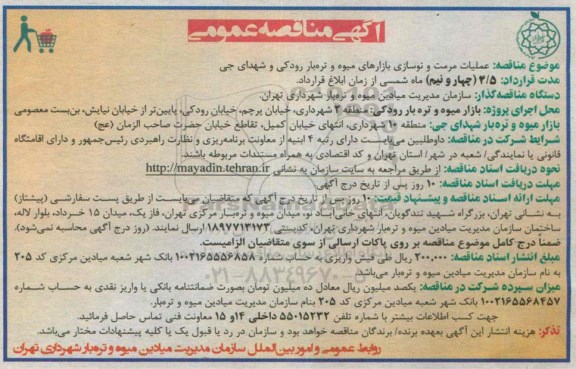 آگهی مناقصه عمومی
موضوع مناقصه: عملیات مرمت و نوسازی بازارهای میوه و تره‌بار رودکی و شهدای جی
مدت قرارداد: ۳/۵ (چهار و نیم) ماه شمسی از زمان ابلاغ قرارداد.
دستگاه مناقصه‌گذار: سازمان مدیریت میادین میوه و تره‌بار شهرداری تهران.
محل اجرای پروژه: بازار میوه و تره بار رودکی: منطقه ۲ شهرداری، خیابان پرچم، خیابان رودکی، پایین‌تر از خیابان نیایش، بن‌بست معصومی
بازار میوه و تره‌بار شهدای جی: منطقه ۱۰ شهرداری، انتهای خیابان کمیل، تقاطع خیابان حضرت صاحب الزمان (عج)
شرایط شرکت در مناقصه: داوطلبین می‌بایست دارای رتبه ۴ ابنیه از معاونت برنامه‌ریزی و نظارت راهبردی رئیس‌جمهور و دارای اقامتگاه
قانونی یا نمایندگی/ شعبه در شهر/ استان تهران و کد اقتصادی به همراه مستندات مربوطه باشند.
نحوه دریافت اسناد مناقصه: از طریق مراجعه به سایت سازمان به نشانی http://mayadin.tehran.ir
مهلت دریافت اسناد مناقصه: ۱۰ روز پس از تاریخ درج آگهی.
مهلت ارائه اسناد مناقصه و پیشنهاد قیمت: ۱۰ روز پس از تاریخ درج آگهی که متقاضیان می‌بایست از طریق پست سفارشی (پیشتاز)
به نشانی تهران، بزرگراه شهید تندگویان، انتهای خانی‌آباد نو، میدان میوه و تره‌بار مرکزی تهران، فاز یک، میدان ۱۵ خرداد، بلوار لاله،
ساختمان سازمان مدیریت میادین میوه و تره‌بار شهرداری تهران، کدپستی ۱۸۹۷۷۱۳۱۷۳ ارسال نمایند. (روز درج آگهی محاسبه نمی‌شود).
ضمناً درج کامل موضوع مناقصه بر روی پاکات ارسالی از سوی متقاضیان الزامیست.
مبلغ انتشار اسناد مناقصه: ۲۰۰,۰۰۰ ریال طی فیش واریزی به حساب شماره ۱۰۰۲۱۶۵۵۵۶۸۵۸ بانک شهر شعبه میادین مرکزی کد ۲۰۵
به نام سازمان مدیریت میادین میوه و تره‌بار می‌باشد.
میزان سپرده شرکت در مناقصه: یکصد میلیون ریال معادل ده میلیون تومان بصورت ضمانتنامه بانکی یا واریز نقدی به حساب شماره
۱۰۰۲۱۶۵۵۶۸۴۵۷ بانک شهر شعبه میادین مرکزی کد ۲۰۵ بنام سازمان مدیریت میادین میوه و تره‌بار.
جهت کسب اطلاعات بیشتر با شماره تلفن ۵۵۰۱۵۲۳۲ داخلی ۱۴ و ۱۵ معاونت فنی تماس حاصل فرمائید.
تذکر: هزینه انتشار این آگهی بعهده برنده/ برندگان مناقصه خواهد بود و سازمان در رد یا قبول یک یا کلیه پیشنهادات مختار می‌باشد.
روابط عمومی و امور بین‌الملل سازمان مدیریت میادین میوه و تره‌بار شهرداری تهران